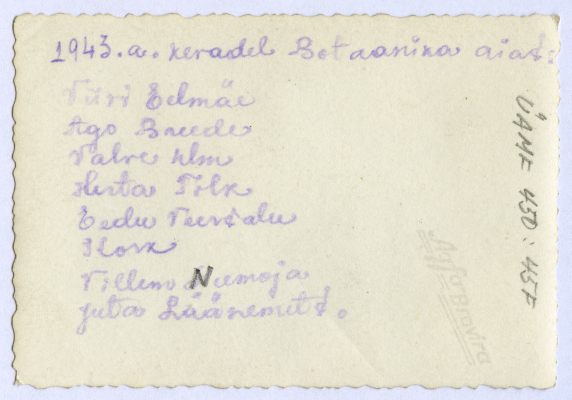 1943.a. keradel Botaanika aiat:
Eelmäe
Ago Breede
Valve Ulm
Herta Tilk
Eedu Veersalu
Kork
Villem Niemoja
Juta Läänemets.
ÜAMF 450:45F
Agfa-Brovira